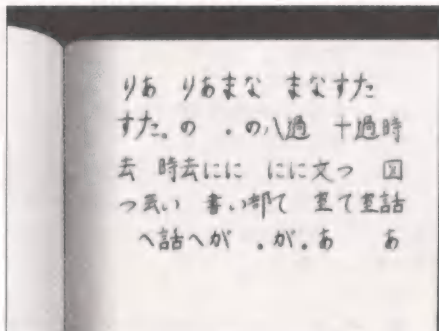 りあ りあまな まなすた
すた。の . の八過 十過時
去 時去にに にに文っ 図
っ気い 書い部て 室て室話
へ話へが . が . あ あ